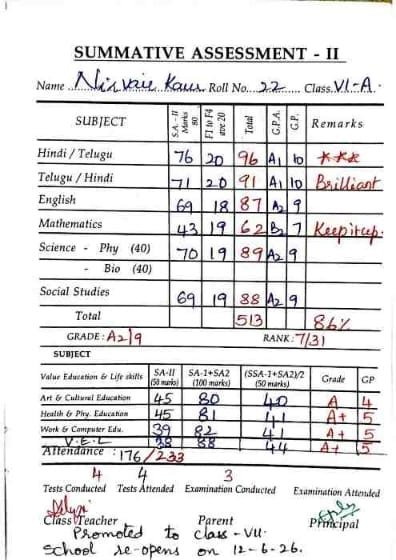 SUMMATIVE ASSESSMENT - II
Name Nirvair Kaur Roll No. 22 Class. VI-A.
SUBJECT S.A. - II Marks 80 F1 to F4 ave 20 Total G.P.A. G.P. Remarks
Hindi / Telugu 76 20 96 A1 10 ***
Telugu / Hindi 71 20 91 A1 10 Brilliant
English 69 18 87 A2 9
Mathematics 43 19 62 B2 7 Keep it up.
Science - Phy (40) 70 19 89 A2 9
- Bio (40)
Social Studies 69 19 88 A2 9
Total 513 86%
GRADE: A2/9 RANK: 7/31
SUBJECT
Value Education & Life skills SA-II (50 marks) SA-1+SA2 (100 marks) (SSA-1+SA2)/2 (50 marks) Grade GP
Art & Cultural Education 45 80 40 A 4
Health & Phy. Education 45 81 41 A+ 5
Work & Computer Edu. 39 82 41 A+ 5
V.E.L 38 88 44 A+ 5
Attendance : 176/233
4 4 3
Tests Conducted Tests Attended Examination Conducted Examination Attended
Class Teacher Parent Principal
Promoted to class - VII.
School re-opens on 12-6-26.